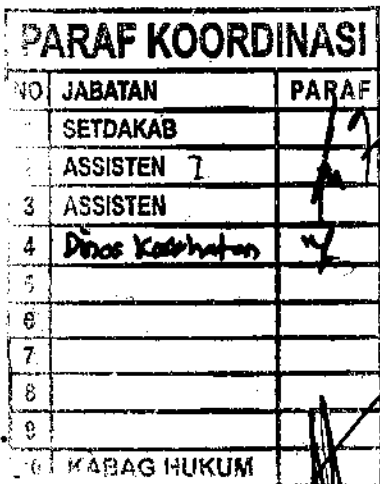 PARAF KOORDINASI
NO JABATAN PARAF
1 SETDAKAB
2 ASSISTEN I
3 ASSISTEN
4 Dinas Kesehatan
5
6
7
8
9
10 KABAG HUKUM